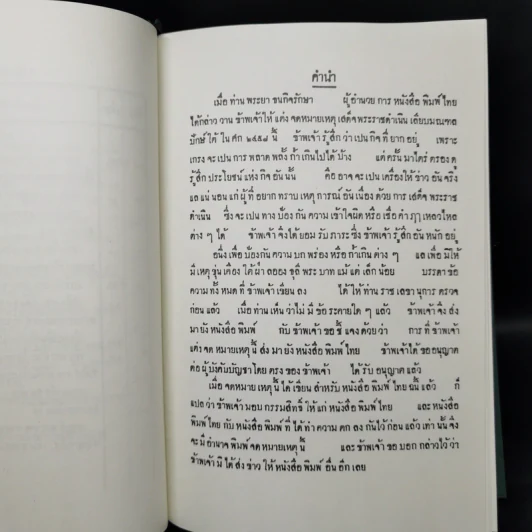 คำนำ
เมื่อ ท่าน พระยา ชนกิจรักษา ผู้อำนวย การ หนังสือ พิมพ์ ไทย
ได้กล่าว วาน ข้าพเจ้าให้ แต่ง จดหมายเหตุ เสด็จ พระราชดำเนิน เลียบมณฑล
ปักษ์ ใต้ ใน ศก ๒๔๕๘ นี้ ข้าพเจ้า รู้สึก ว่า เปน กิจ ที่ ยาก อยู่ เพราะ
เกรง จะ เปน การ พลาด พลั้ง ก้ำ เกินไปได้ บ้าง แต่ ครั้น มาใคร่ ครอง ดู
รู้สึก ประโยชน์ แห่ง กิจ อัน นั้น คือ อาจ จะ เปน เครื่องให้ ข่าว อัน จริง
แล แน่ นอน แก่ ผู้ ที่ อยาก ทราบ เหตุ การณ์ อัน เนื่อง ด้วย การ เสด็จ พระราช
ดำเนิน ซึ่ง จะ เปน ทาง ป้อง กัน ความ เข้าใจผิด หรือ เชื่อ คำ ฦๅ เหลวไหล
ต่าง ๆ ได้ ข้าพเจ้า จึงได้ ยอม รับ ภาระ ซึ่ง ข้าพเจ้า รู้สึก อัน หนัก อยู่
อนึ่ง เพื่อ ป้องกัน ความ บก พร่อง หรือ ก้ำเกิน ต่าง ๆ แล เพื่อ มิให้
มี เหตุ ขุ่น เคือง ใต้ ฝ่า ลออง ธุลี พระ บาท แม้ แต่ เล็ก น้อย บรรดา ข้อ
ความ ทั้ง หมด ที่ ข้าพเจ้า เขียน ลง ได้ ให้ ท่าน ราช เลขา นุการ ตรวจ
ก่อน แล้ว เมื่อ ท่าน เห็น ว่าไม่ มี ข้อ ระคายใด ๆ แล้ว ข้าพเจ้า จึง ส่ง
มา ยัง หนังสือ พิมพ์ กับ ข้าพเจ้า ขอ ชี้ แจง ด้วย ว่า การ ที่ ข้าพเจ้า
แต่ง จด หมายเหตุ นี้ ส่ง มา ยัง หนังสือ พิมพ์ ไทย ข้าพเจ้าได้ ขออนุญาต
ต่อ ผู้ บังคับบัญชา โดย ตรง ของ ข้าพเจ้า ได้ รับ อนุญาต แล้ว
เมื่อ จดหมาย เหตุ นี้ ได้ เขียน สำหรับ หนังสือ พิมพ์ ไทย ฉนี้ แล้ว ก็
แปล ว่า ข้าพเจ้า มอบ กรรมสิทธิ์ ให้ แก่ หนังสือ พิมพ์ ไทย และ หนังสือ
พิมพ์ ไทย กับ หนังสือ พิมพ์ ที่ ได้ ทำ ความ ตก ลง กันไว้ ก่อน แล้ว เท่า นั้น จึง
จะ มี อำนาจ พิมพ์ จด หมายเหตุ นี้ และ ข้าพเจ้า ขอ บอก กล่าวไว้ ว่า
ข้าพเจ้า มิ ได้ ส่ง ข่าว ให้ หนังสือ พิมพ์ อื่น อีก เลย